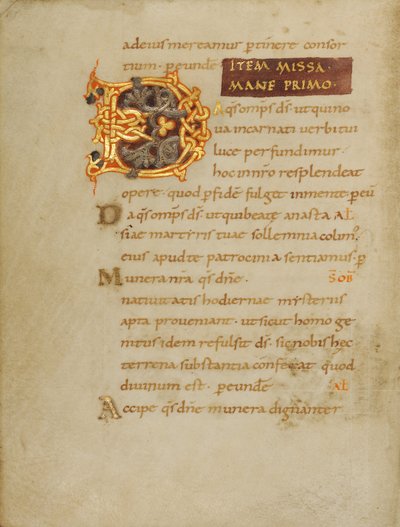 ad eius mereamur p tinere consor
tium · p eunde
ITEM MISSA ·
MANE PRIMO ·
DA qs omps ds · ut qui no
ua incarnati uerbi tui
luce perfundimur ·
hoc in nro resplendeat
opere · quod p fidē fulget in mente · p eū
Da qs omps ds · ut qui beatę anastа AL
siae martyris tuae sollemnia colim;
eius apud te patrocinia sentiamus · p
Munera nra qs dne · SOB
natiuitatis hodiernae mysteriis
apta proueniant · ut sicut homo ge
nitus idem refulsit ds · sic nobis hęc
terrena substantia conferat quod
diuinum est · p eunde AL
Accipe qs dne munera dignanter